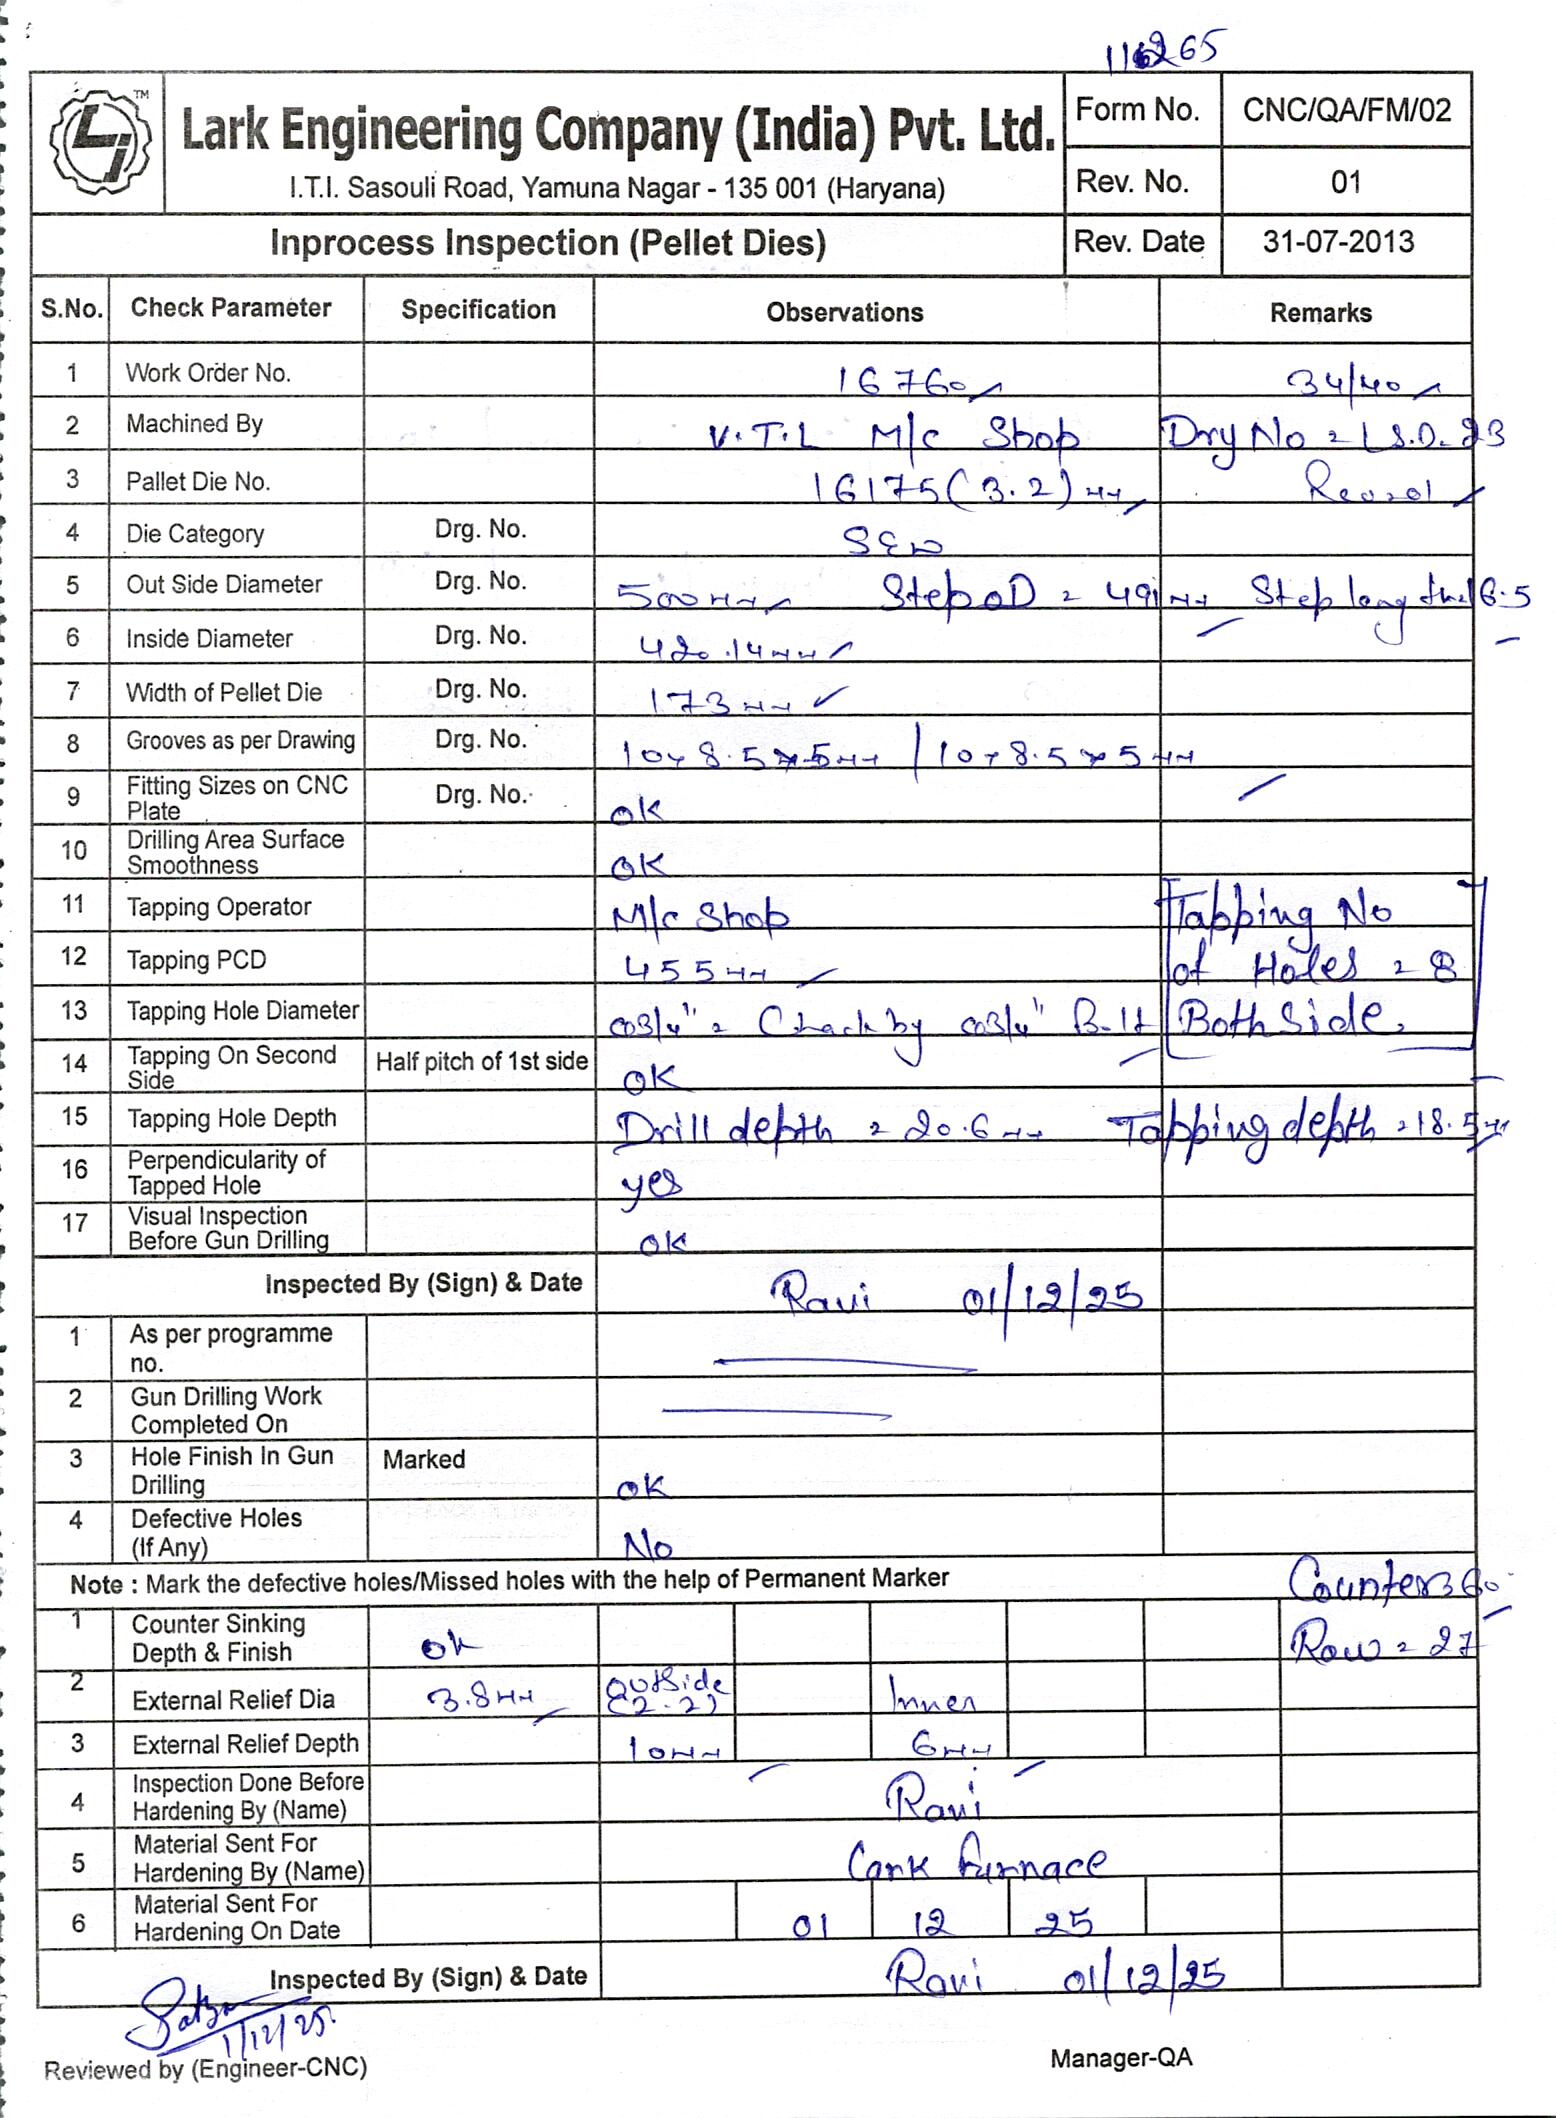 116265
TM
Lark Engineering Company (India) Pvt. Ltd.
I.T.I. Sasouli Road, Yamuna Nagar - 135 001 (Haryana)
Form No. CNC/QA/FM/02
Rev. No. 01
Inprocess Inspection (Pellet Dies) Rev. Date 31-07-2013
S.No. Check Parameter Specification Observations Remarks
1 Work Order No. 16760 34/40
2 Machined By V.T.L M/c Shop Dry No = L S.D. 23
3 Pallet Die No. 16175 (3.2) mm
4 Die Category Drg. No. SEW
5 Out Side Diameter Drg. No. 500mm Step OD = 491mm Step long the 6.5
6 Inside Diameter Drg. No. 420.14mm
7 Width of Pellet Die Drg. No. 173mm ✓
8 Grooves as per Drawing Drg. No. 10x8.5x5mm / 10x8.5x5mm
9 Fitting Sizes on CNC Plate Drg. No. OK
10 Drilling Area Surface Smoothness OK
11 Tapping Operator M/c Shop Tapping No
12 Tapping PCD 455mm of Holes = 8
13 Tapping Hole Diameter 3/4" = Check by 3/4" Bolt Both Side
14 Tapping On Second Side Half pitch of 1st side OK
15 Tapping Hole Depth Drill depth = 20.6mm Tapping depth = 18.5mm
16 Perpendicularity of Tapped Hole yes
17 Visual Inspection Before Gun Drilling OK
Inspected By (Sign) & Date Ravi 01/12/25
1 As per programme no.
2 Gun Drilling Work Completed On
3 Hole Finish In Gun Drilling Marked OK
4 Defective Holes (If Any) No
Note : Mark the defective holes/Missed holes with the help of Permanent Marker Counter 360
1 Counter Sinking Depth & Finish ok Row = 27
2 External Relief Dia 3.8mm Outside (2-2) Inner
3 External Relief Depth 10mm 6mm
4 Inspection Done Before Hardening By (Name) Ravi
5 Material Sent For Hardening By (Name) Lark Furnace
6 Material Sent For Hardening On Date 01 12 25
Inspected By (Sign) & Date Ravi 01/12/25
1/12/25.
Reviewed by (Engineer-CNC) Manager-QA